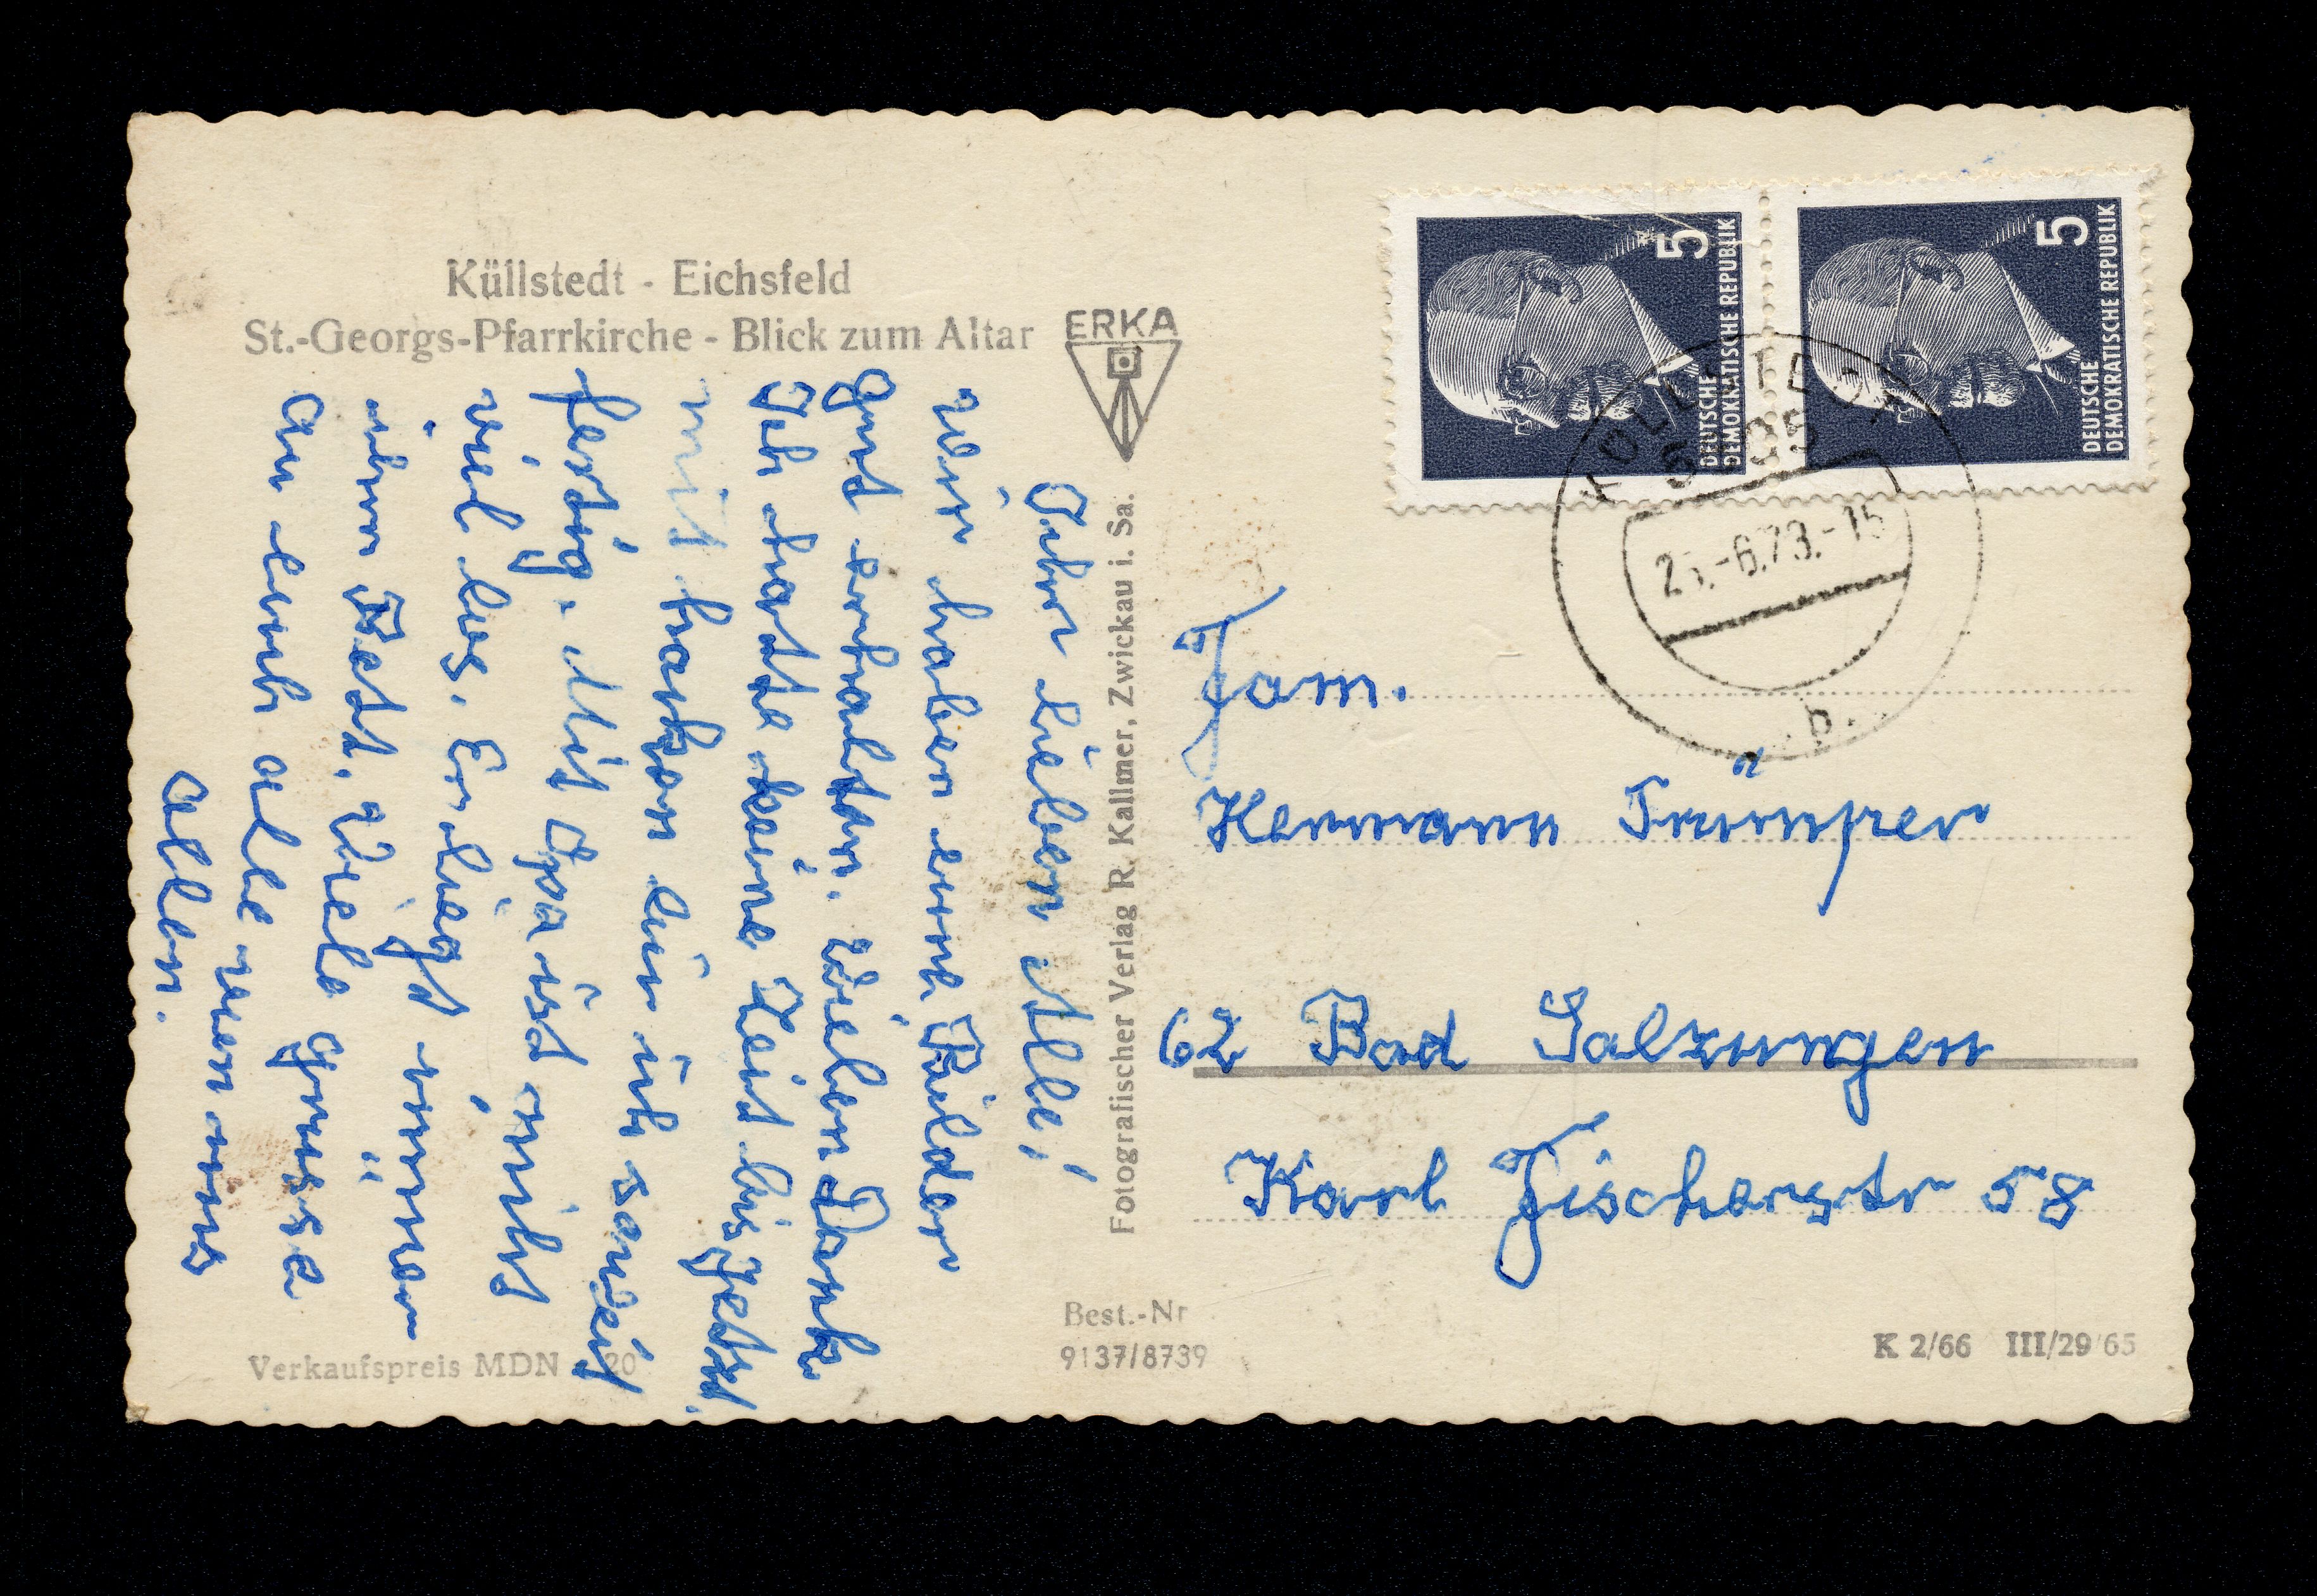 Küllstedt - Eichsfeld
St.-Georgs-Pfarrkirche - Blick zum Altar
ERKA
Fotografischer Verlag R. Kallmer, Zwickau i. Sa.
Ihr lieben Alle!
Wir haben eure Bilder
gut erhalten. Vielen Dank
Ich hatte keine Zeit bis jetzt.
mit hacken bin ich soweit
fertig. Mit Opa ist nicht
viel los. Er liegt immer
im Bett. Viele Grüsse
an euch alle von uns
allen.
5
DEUTSCHE
DEMOKRATISCHE REPUBLIK
5
DEUTSCHE
DEMOKRATISCHE REPUBLIK
-6.73.-15
b
Fam.
Hermann Trümper
62 Bad Salzungen
Karl Fischerstr 58
Best.-Nr
9137/8739
Verkaufspreis MDN 20
K 2/66 III/29 65